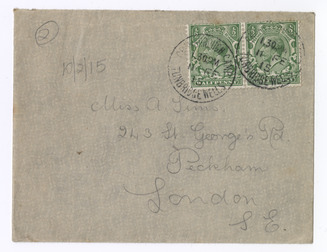 2
10/3/15
TUNBRIDGE WELLS
Miss A
243 St. George's Rd
Peckham
London
S.E.